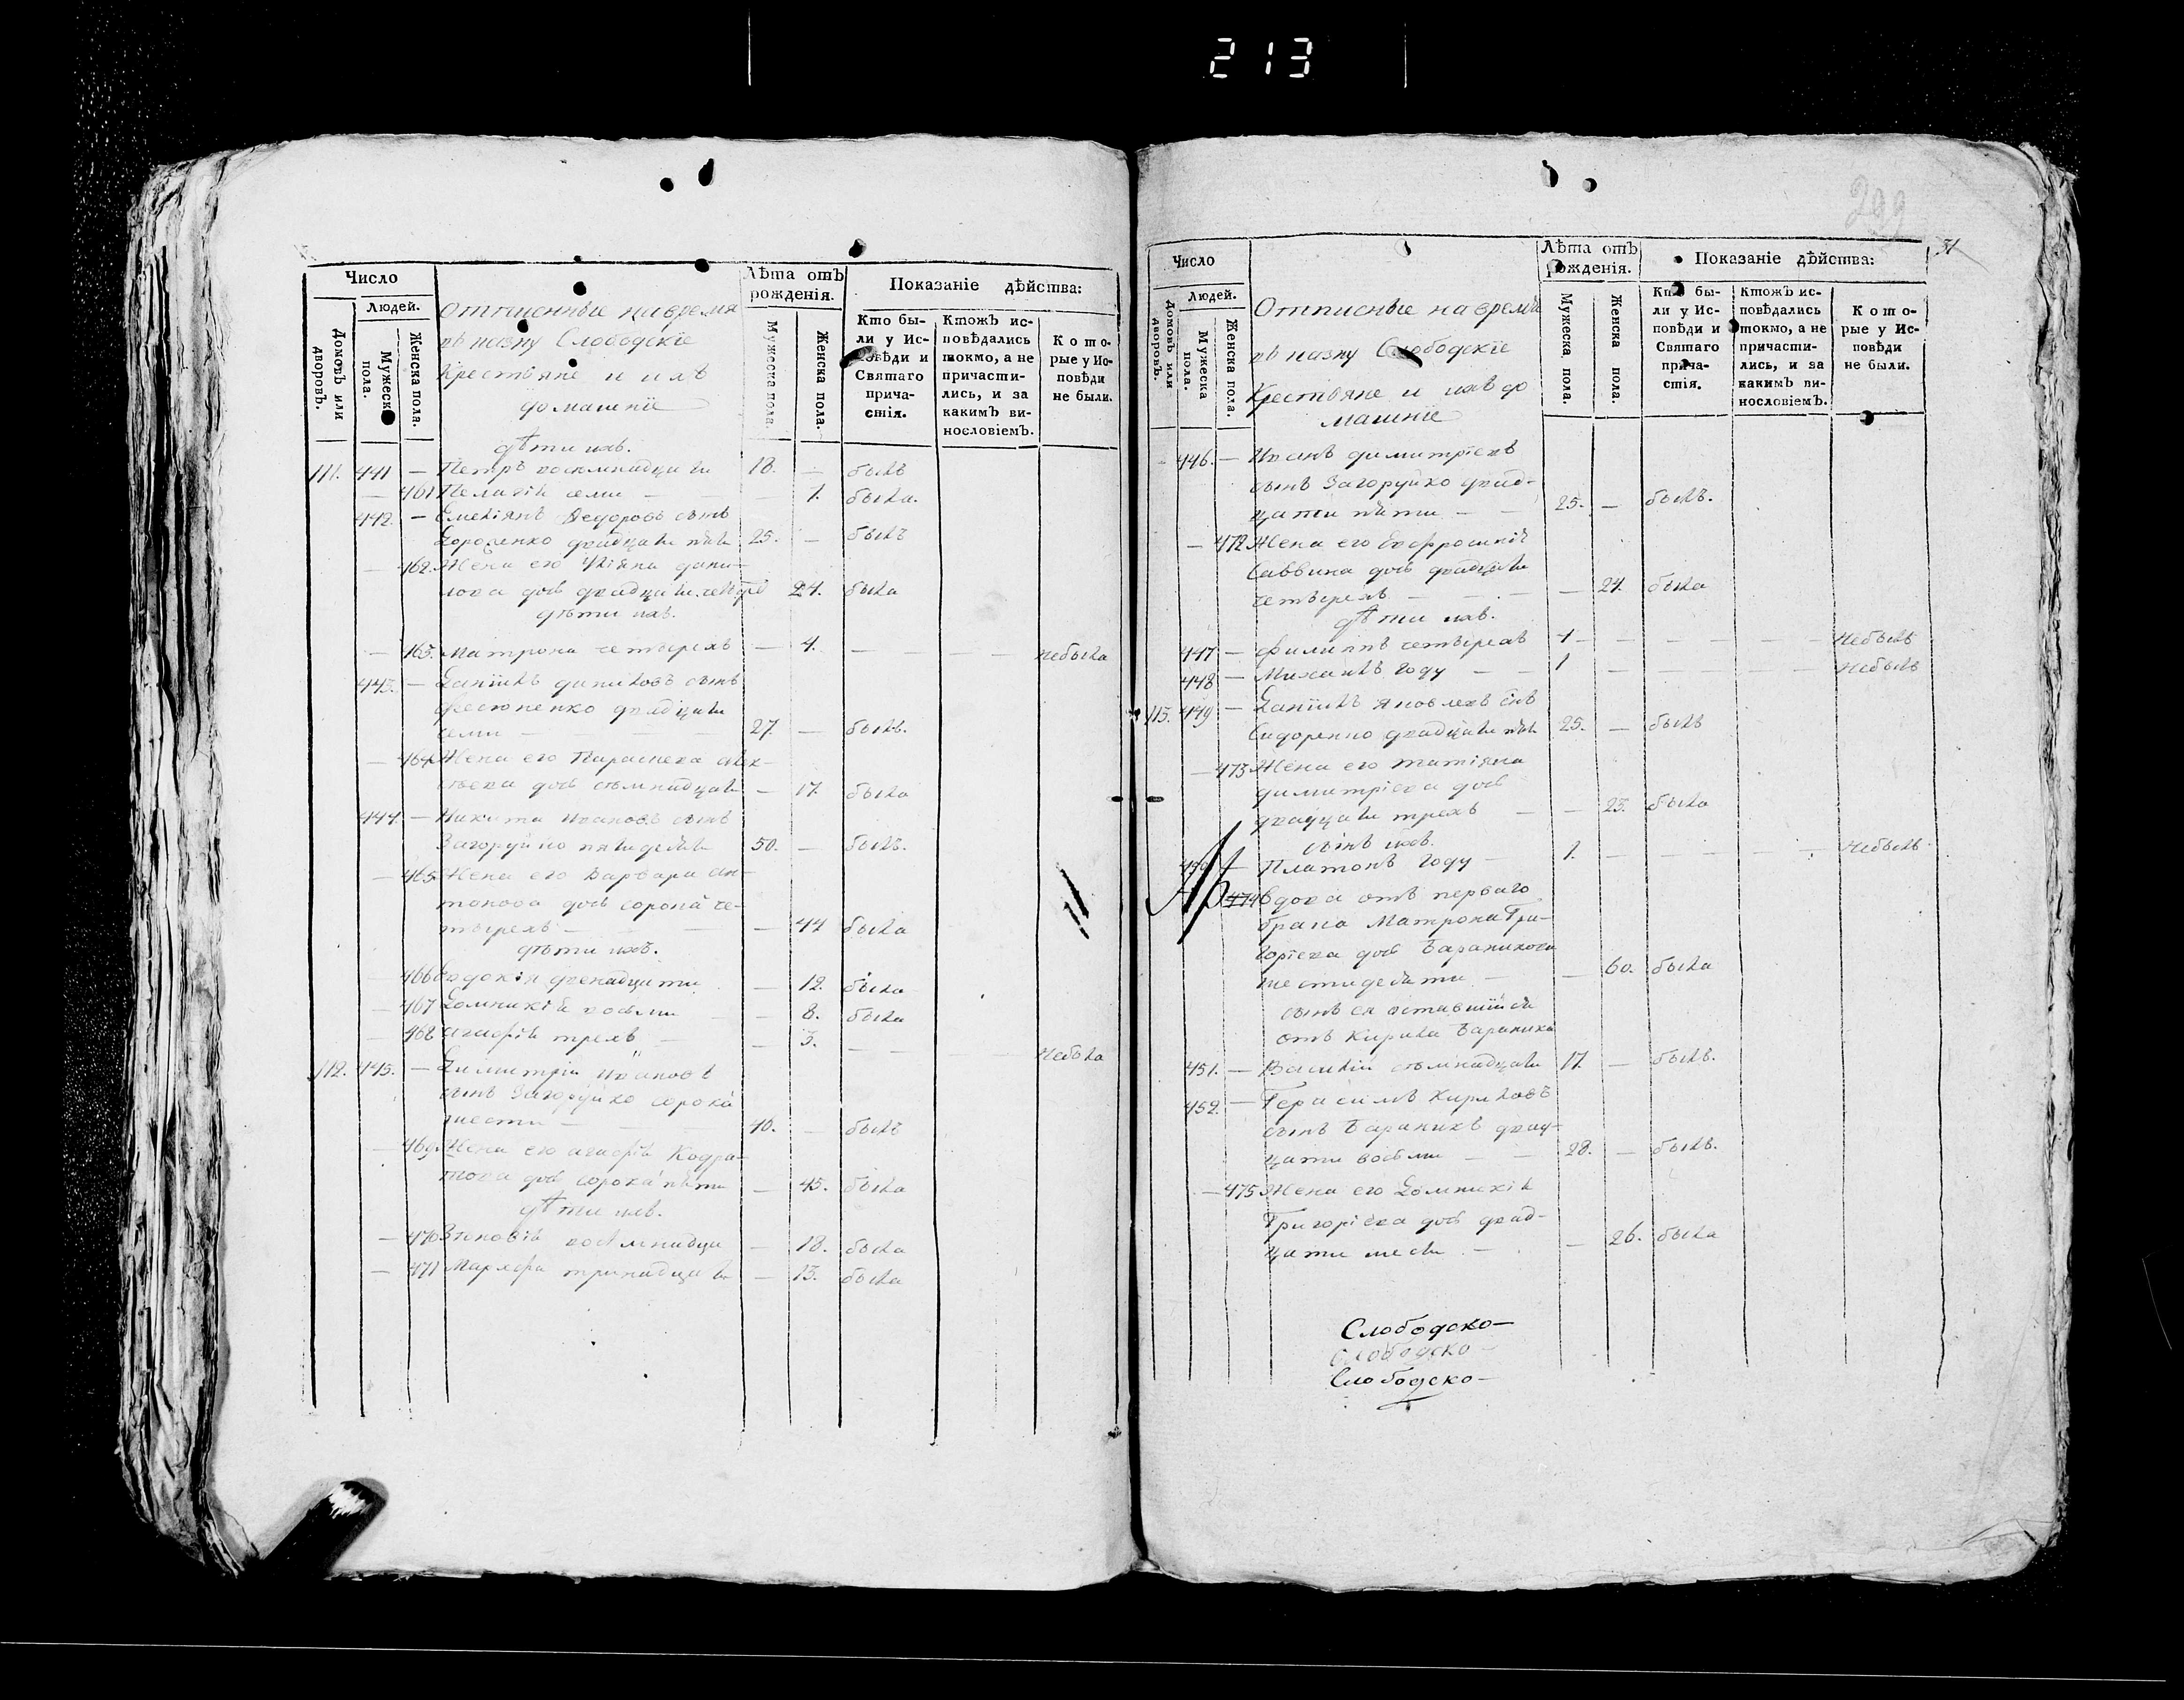 213
Число
Людей.
Домовъ или дворовъ.
Мужеска пола.
Женска пола.
Отписные на время
въ казну Слободскіе
Крестьяне и ихъ
домашніе
Лѣта отъ рожденія.
Мужеска пола.
Женска пола.
Показаніе дѣйства:
Кто были у Исповѣди и Святаго причастія.
Ктожъ исповѣдались токмо, а не причастились, и за какимъ винословіемъ.
Которые у Исповѣди не были.
дѣти ихъ.
111. 441 — Петръ восемнадцати 18. — былъ
— 461 Пелагія семи — — 7. была.
442. — Емеліянъ Федоровъ сынъ
двадцати пяти 25. — былъ
— 462. Жена его Уліяна Дани-
лова дочь двадцати четыре 24. была
дѣти ихъ.
— 463. Матрона четырехъ — 4. — — — небыла
443. — Даніилъ Даниловъ сынъ
двадцати
семи — 27. — былъ.
— 464 Жена его Параскева Алек-
сѣева дочь семнадцати — 17. была
444. — Никита Ивановъ сынъ
Загоруйко пятидесяти 50. — былъ.
— 465. Жена его Варвара Ан-
тонова дочь сорока че-
тырехъ — — 44 была
дѣти ихъ.
466 Евдокія двенадцати — 12. была
— 467 Домникія восьми — 8. была
— 468 Агафія трехъ — 3. — — Небыла
112. 445. — Димитрій Ивановъ
сынъ Загоруйко сорока
шести — 46. — былъ
— 469. Жена его Агафія Кодра-
това дочь сорока пяти — 45. была
дѣти ихъ.
— 470 Зѣновія восемнадца — 18. была
— 471 Марфа тринадцати — 13. была
299
31
Число
Людей.
Домовъ или дворовъ.
Мужеска пола.
Женска пола.
Отписные на время
въ казну Слободскіе
Крестьяне и ихъ до
машніе
Лѣта отъ рожденія.
Мужеска пола.
Женска пола.
Показаніе дѣйства:
Кто были у Исповѣди и Святаго причастія.
Ктожъ исповѣдались токмо, а не причастились, и за какимъ винословіемъ.
Которые у Исповѣди не были.
— 446. — Иванъ Димитріевъ
сынъ Загоруйко двад-
цати пяти — 25. — былъ.
— 472 Жена его Евфросинія
Саввина дочь двадцати
четырехъ — — 24. была
дѣти ихъ.
447 — Филиппъ четырехъ 4 — — — Небылъ
448 — Михаилъ году — 1 — — — Небылъ
113. 449 — Даніилъ Яковлевъ снъ
Сидоренко двадцати пяти 25. — былъ
— 473 Жена его Татіяна
Димитріева дочь
двадцати трехъ — — 23. была
сынъ ихъ.
450 — Платонъ году — 1. — — — Небылъ
474 Вдова отъ перваго
брака Матрона Гри-
горіева дочь Бараникова
шестидесяти — — 60. была
сынъ ея оставшійся
отъ Кирила Бараника
451. — Василій семнадцати 17. — былъ.
452. — Герасимъ Кириловъ
сынъ Бараникъ двад-
цати восьми — 28. — былъ.
— 475 Жена его Домникія
Григоріева дочь двад-
цати шести — — 26. была
Слободско—
Слободско—
Слободско—